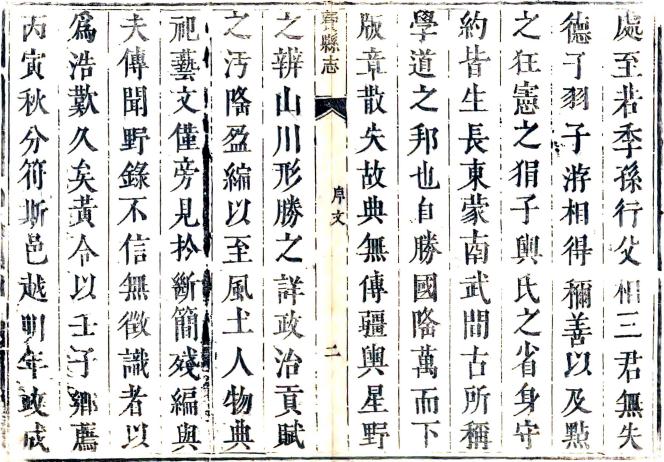 處至若季孫行父相三君無失
德了羽子游相得稱善以及點
之狂憲之狷子輿氏之省身守
約皆生長東蒙南武間古所稱
學道之邦也自勝國隆萬而下
版章散失故典無傳疆輿星野
縣志
序文
二
之辨山川形勝之詳政治貢賦
之污隆盈縮以至風土人物典
祀藝文僅旁見於斷簡殘編與
夫傳聞野錄不信無徵識者以
為浩歎久矣黃令以壬子鄉薦
丙寅秋分符斯邑越明年政成